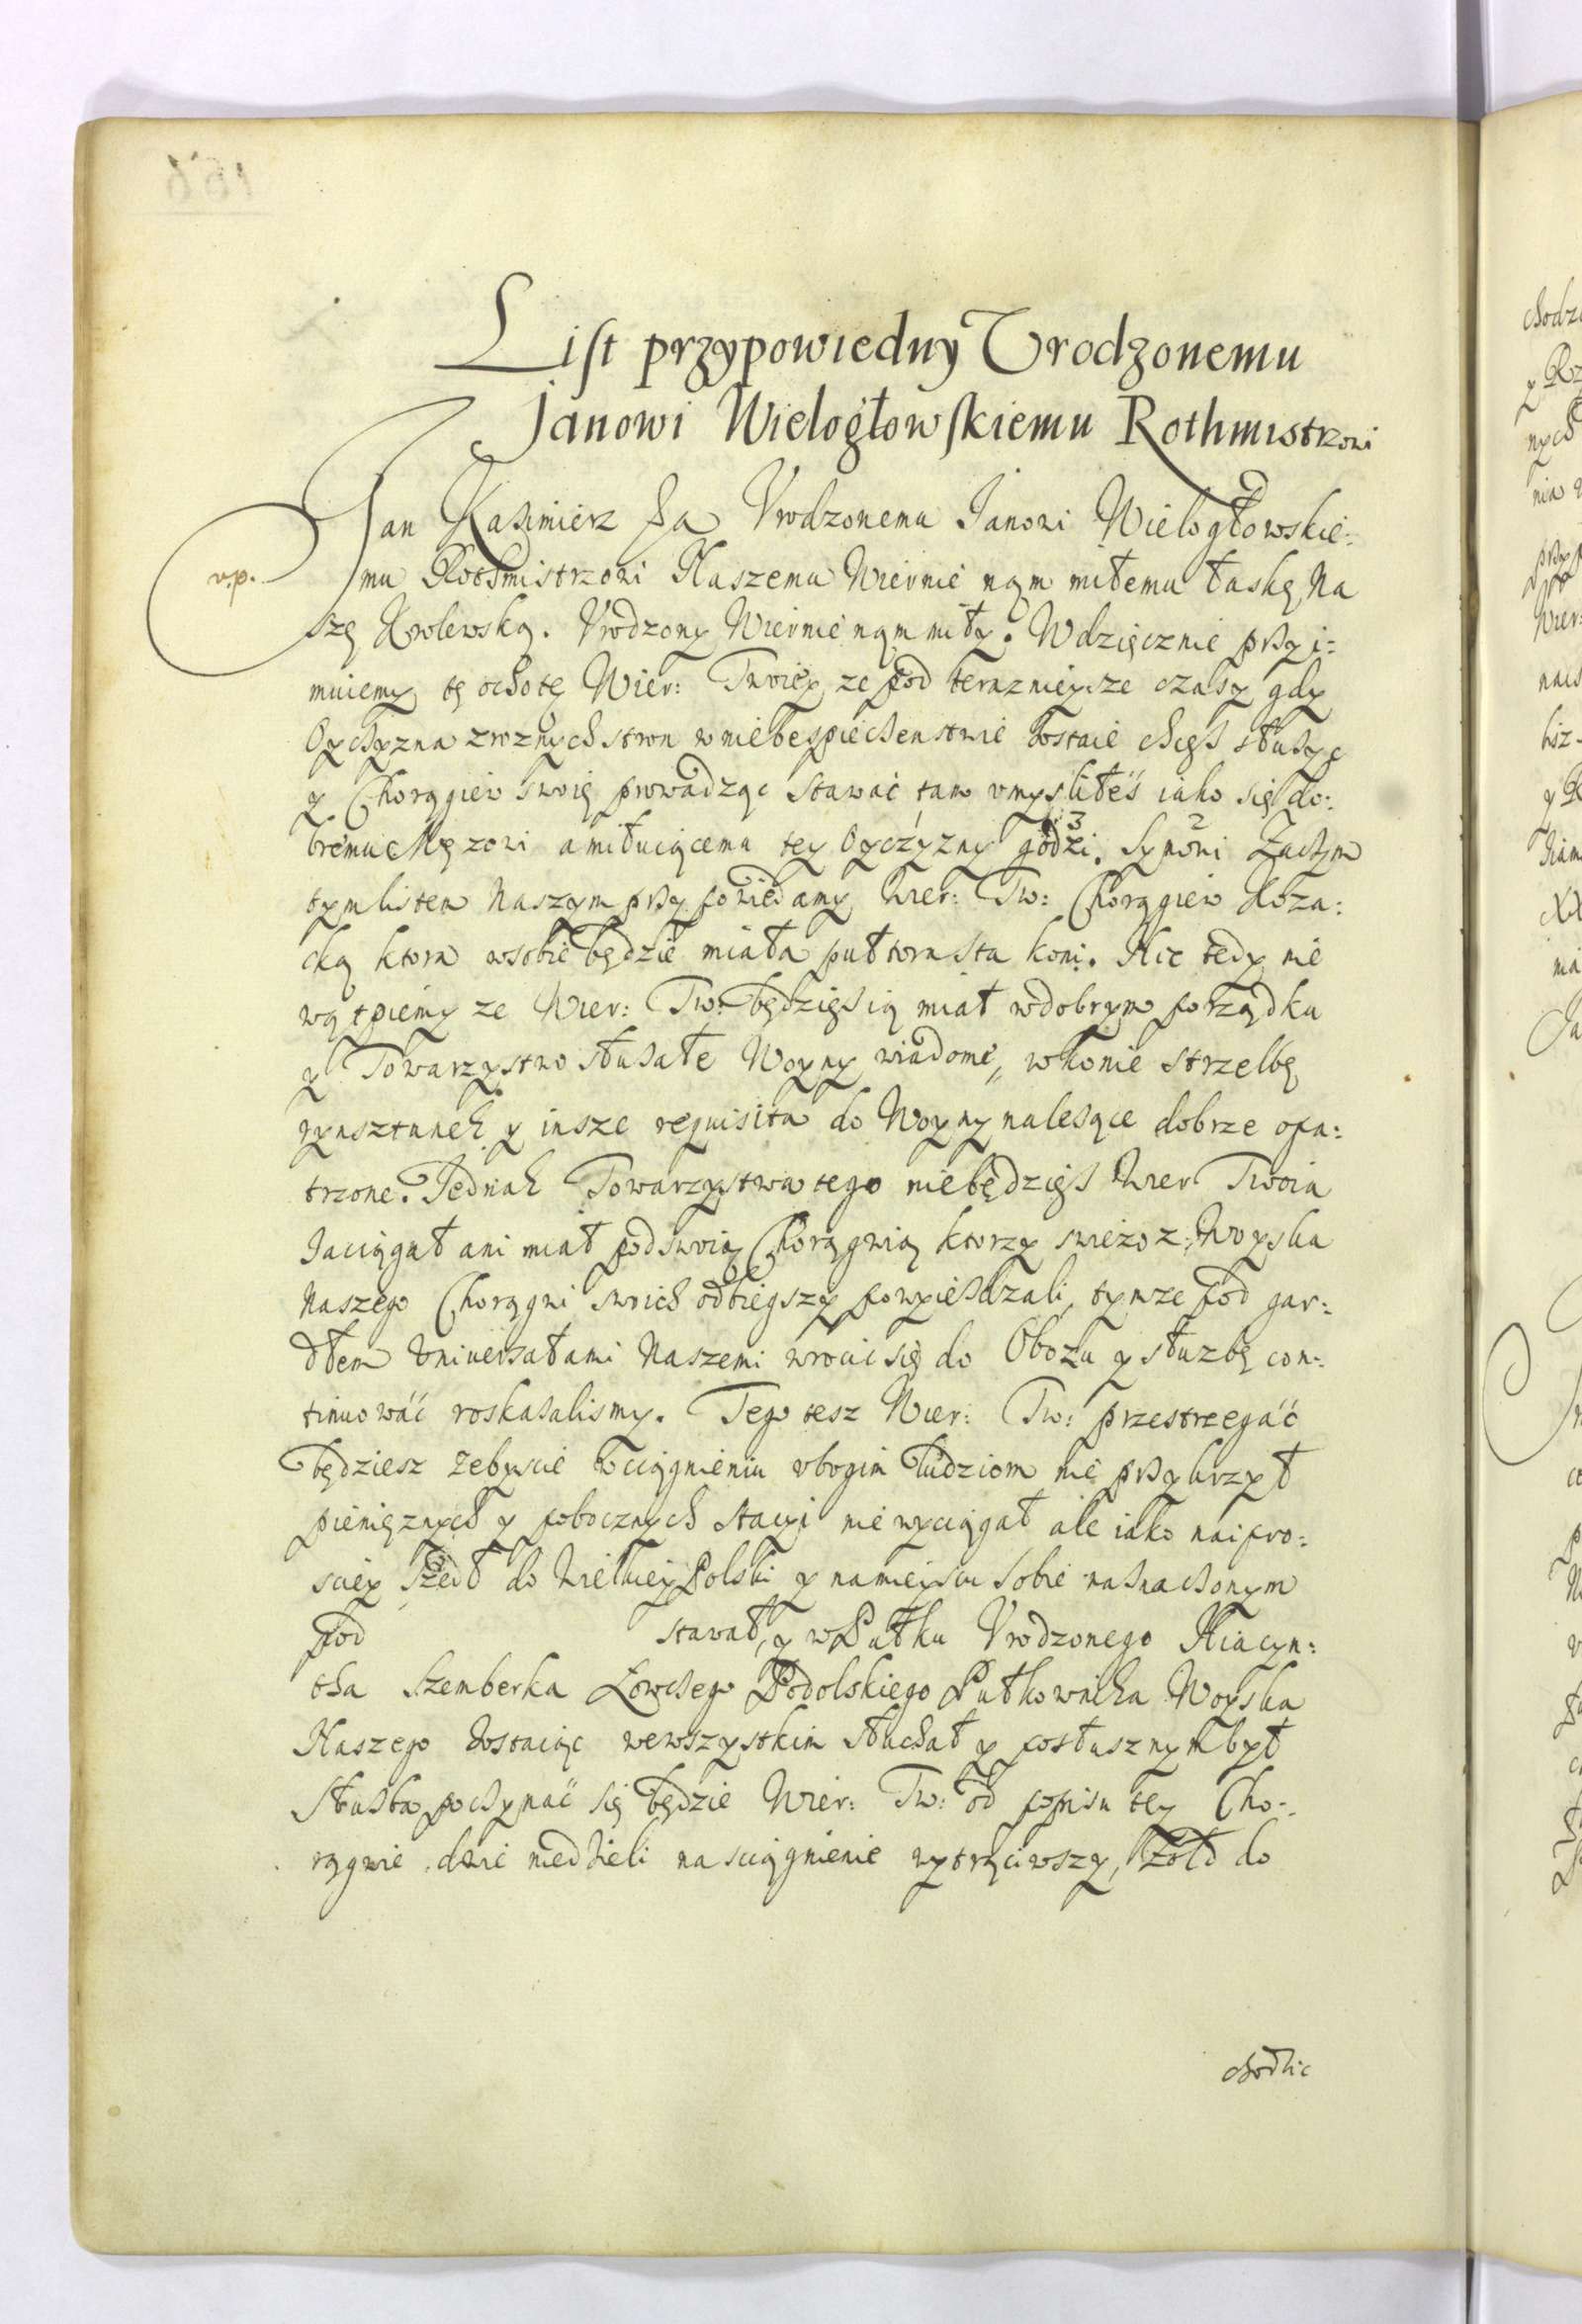 List przypowiedny Vrodzonemu
Janowi Wielogłowskiemu Rothmistrzowi
Jan Kazimierz &c Vrodzonemu Janowi Wielogłowskie-
v.p. mu Rothmistrzowi Naszemu Wiernie nąm miłemu łaskę Na
szę Krolewską. Vrodzony Wiernie nąm miły. Wdzięcznie przyi-
muiemy tę ochotę Wier: Twoiey ze pod teraznieysze czasy gdy
Oyczyzna z roznych stron w niebespieczenstwie zostaie chcesz słuzyc
y Chorągiew swoię prowadząc stawać tam vmysliłeś iako się do-
bremu Męzowi a miłuiącemu tey Oyczyzny godzi. 3 Synowi 2 Zaczym
tym listem Naszym przypowiedamy Wier: Tw: Chorągiew Koza-
cką ktora w sobie będzie miała pułtorasta koni. Nic tedy nie
wątpiemy ze Wier: Tw: będziesz ią miał w dobrym porządku
y Towarzystwo słuzałe Woyny wiadome, w konie strzelbę
rynsztunek y insze requisita do Woyny nalezące dobrze opa-
trzone. Jednak Towarzystwa tego niebędziesz Wier Twoia
zaciągał ani miał pod swoią Chorągwią ktorzy swiezo z Woyska
Naszego Chorągwi swoich odbiegszy powyiezdzali, tymze pod gar-
dłem Vniuersałami Naszemi wrocic się do Obozu y słuzbę con-
tinuowáć roskazalismy. Tego tesz Wier: Tw: przestrzegáć
będziesz zebyscie w ciągnieniu vbogim ludziom nie przykrzył
pienięznych y pobocznych stacyi nie wyciągał ale iako naipro-
sciey szedł do Wielkiey Polski y na mieyscu sobie naznaczonym
pod stawał, y w Pułku Vrodzonego Hiacyn-
tha Szemberka Łowczego Podolskiego Pułkownika Woyska
Naszego zostaiąc we wszystkim słuchał y posłusznym był
Słuzba poczynać się będzie Wier: Tw: od popisu tey Cho-
rągwie dwie niedzieli na sciągnienie wytrąciwszy, Zołd do
chodzic